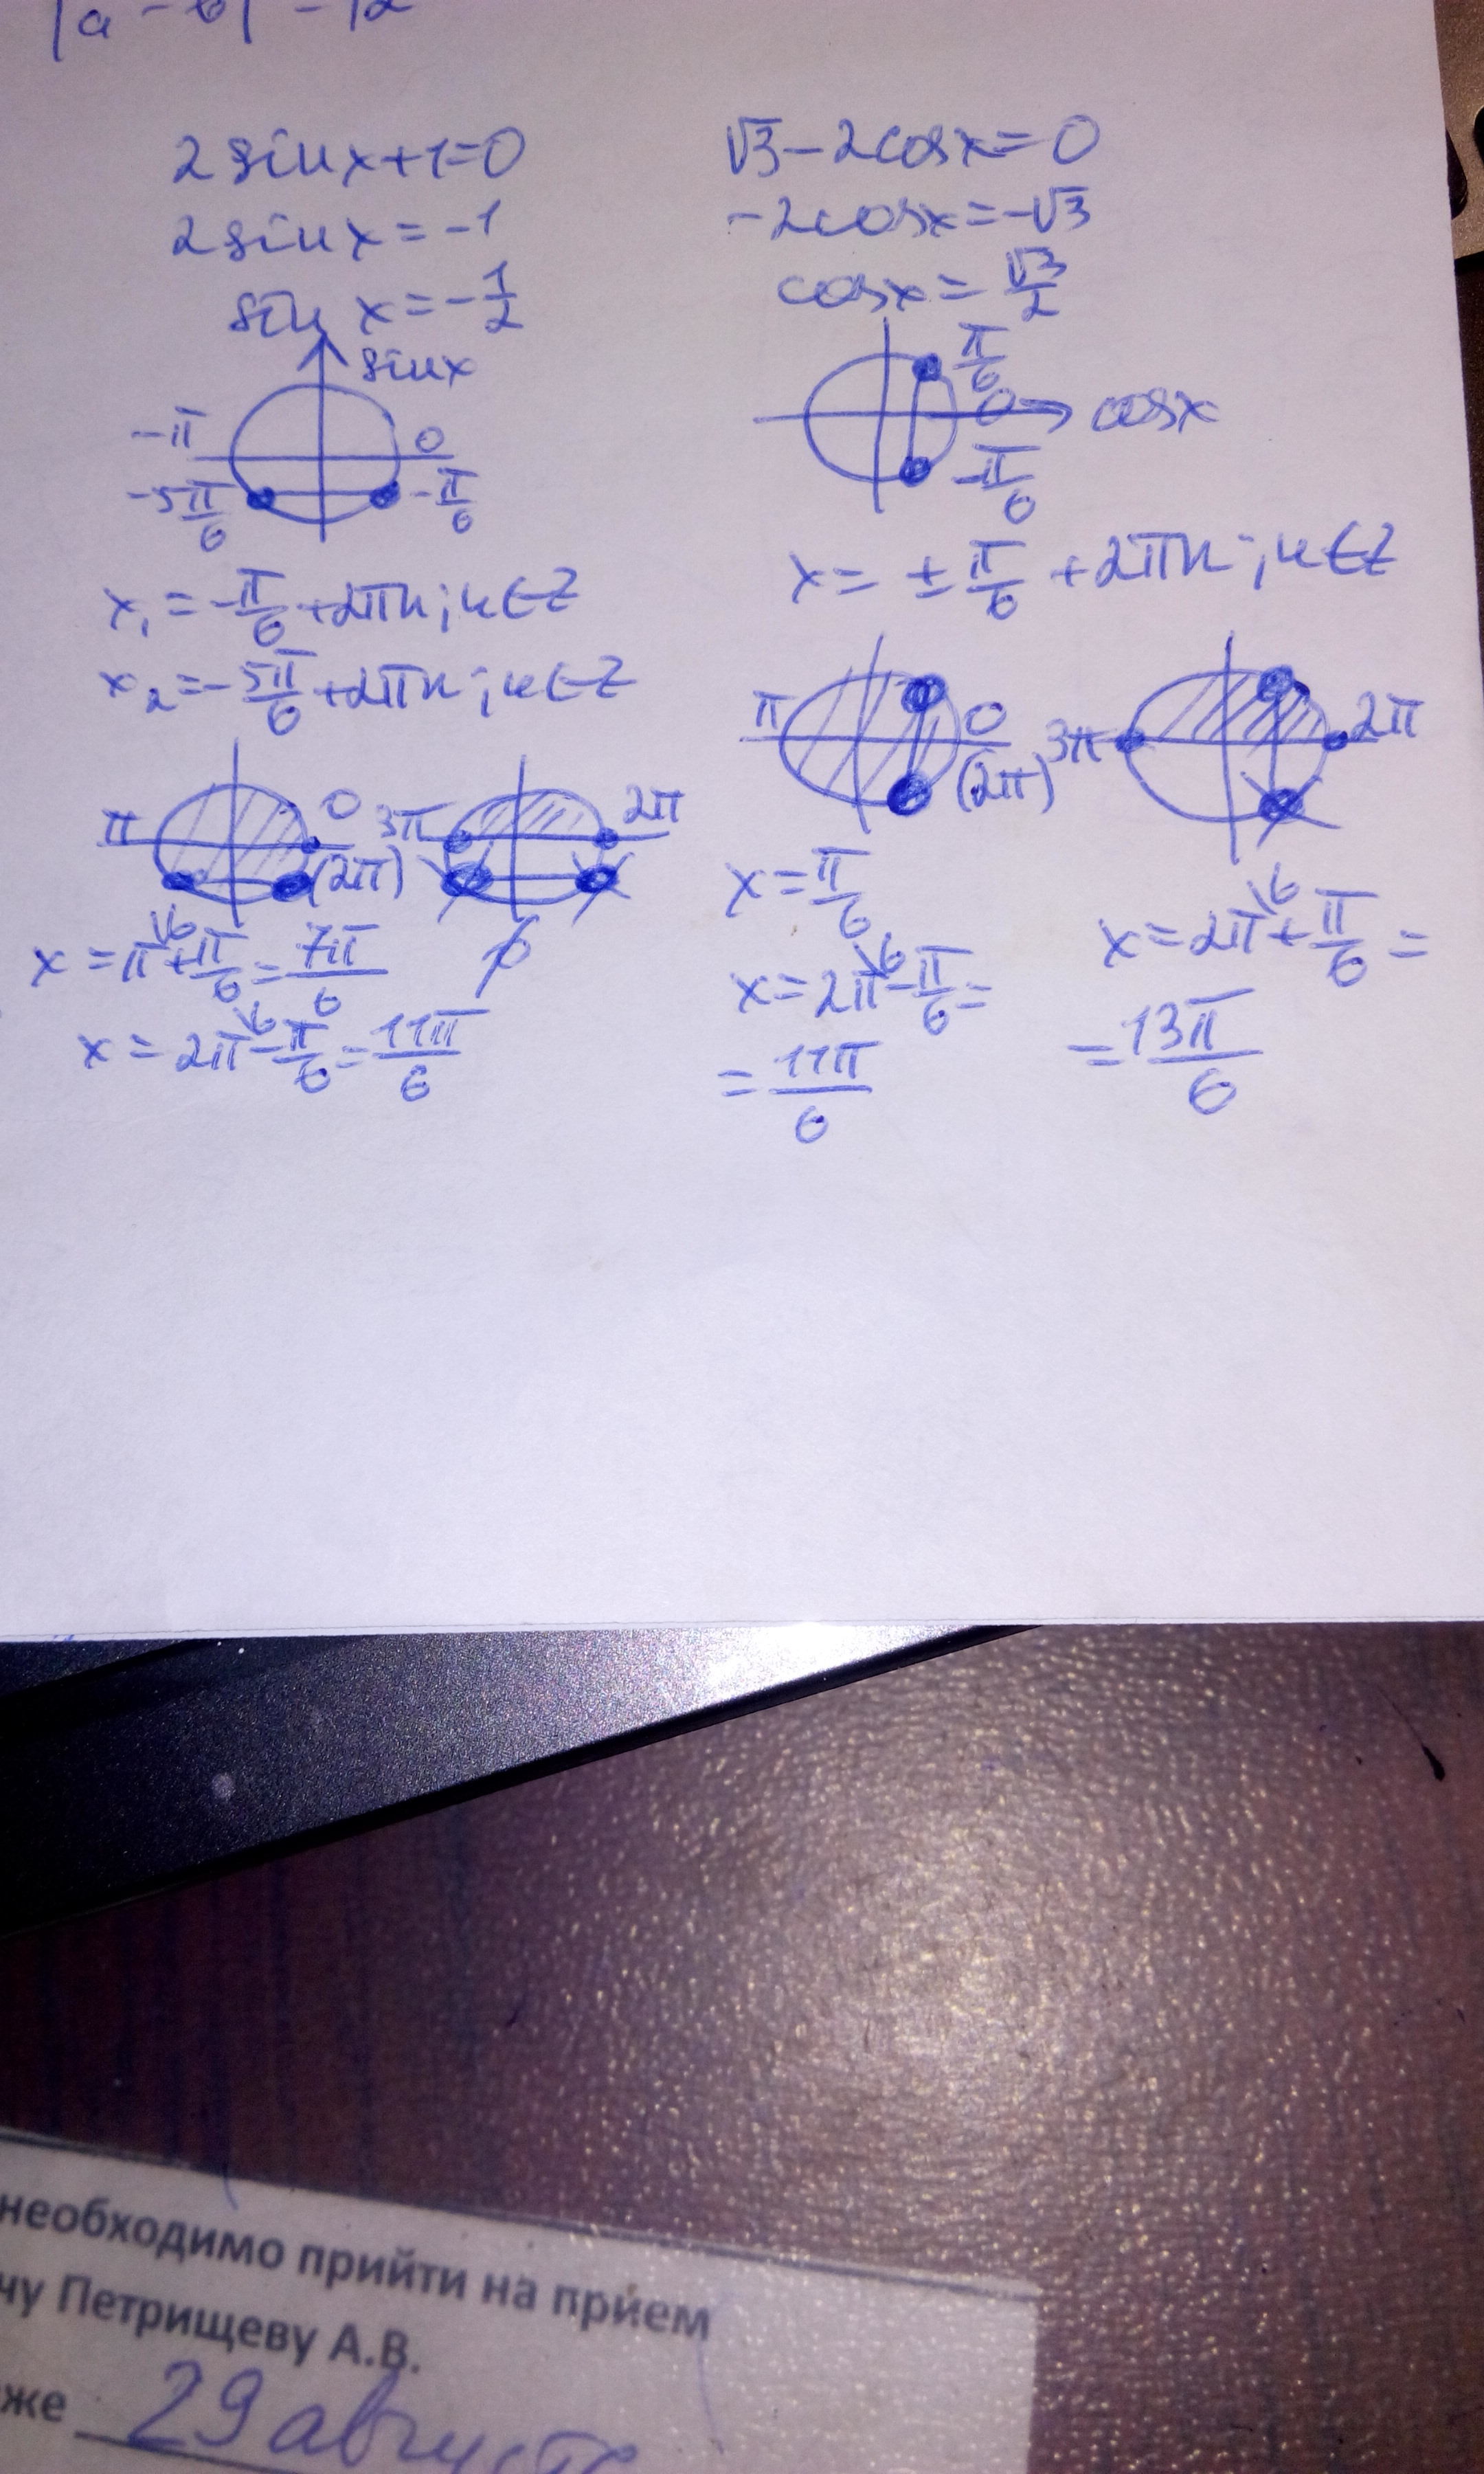 |a - b| = 12
2 sin x + 1 = 0
2 sin x = -1
sin x = -1/2
sin x
-π
0
-5π/6
-π/6
x₁ = -π/6 + 2πn; n ∈ Z
x₂ = -5π/6 + 2πn; n ∈ Z
π
0
(2π)
3π
2π
x = π\6 + π/6 = 7π/6
∅
x = 2π\6 - π/6 = 11π/6
√3 - 2cos x = 0
-2cos x = -√3
cos x = √3/2
π/6
0
cos x
-π/6
x = ± π/6 + 2πn; n ∈ Z
π
0
(2π)
3π
2π
x = π/6
x = 2π\6 - π/6 =
= 11π/6
x = 2π\6 + π/6 =
= 13π/6
необходимо прийти на прием
чу Петрищеву А.В.
же 29 августа